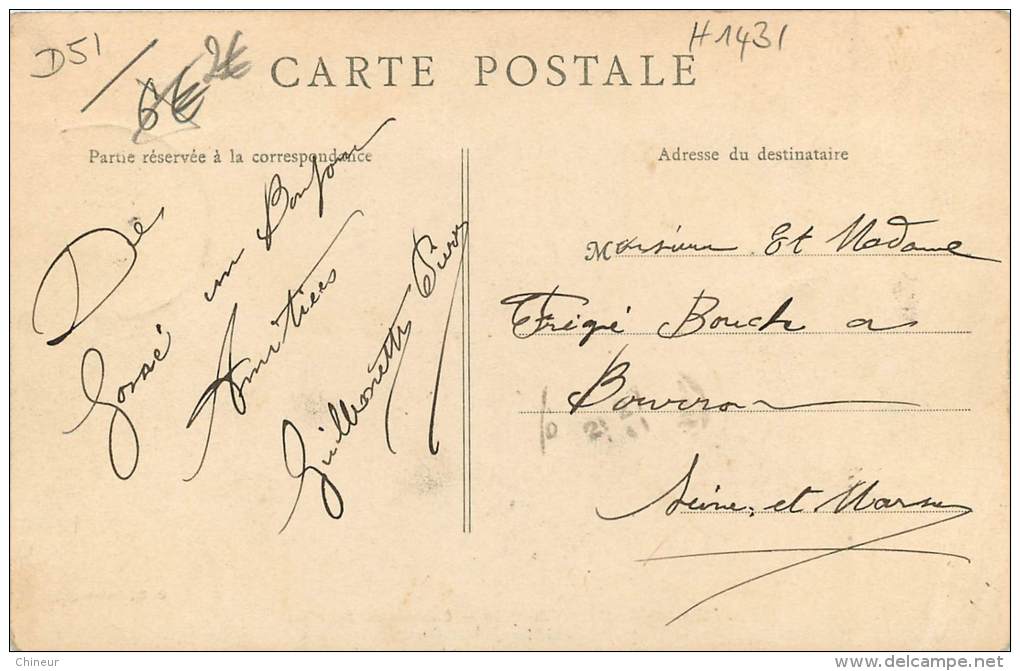 D51
6€ 2€
H1431
CARTE POSTALE
Partie réservée à la correspondance
Adresse du destinataire
De
un Bonjour
Amitiées
Pierre
Monsieur Et Madame
Frigé Bouch a
Seine, et Marne
Chineur
www.delcampe.net